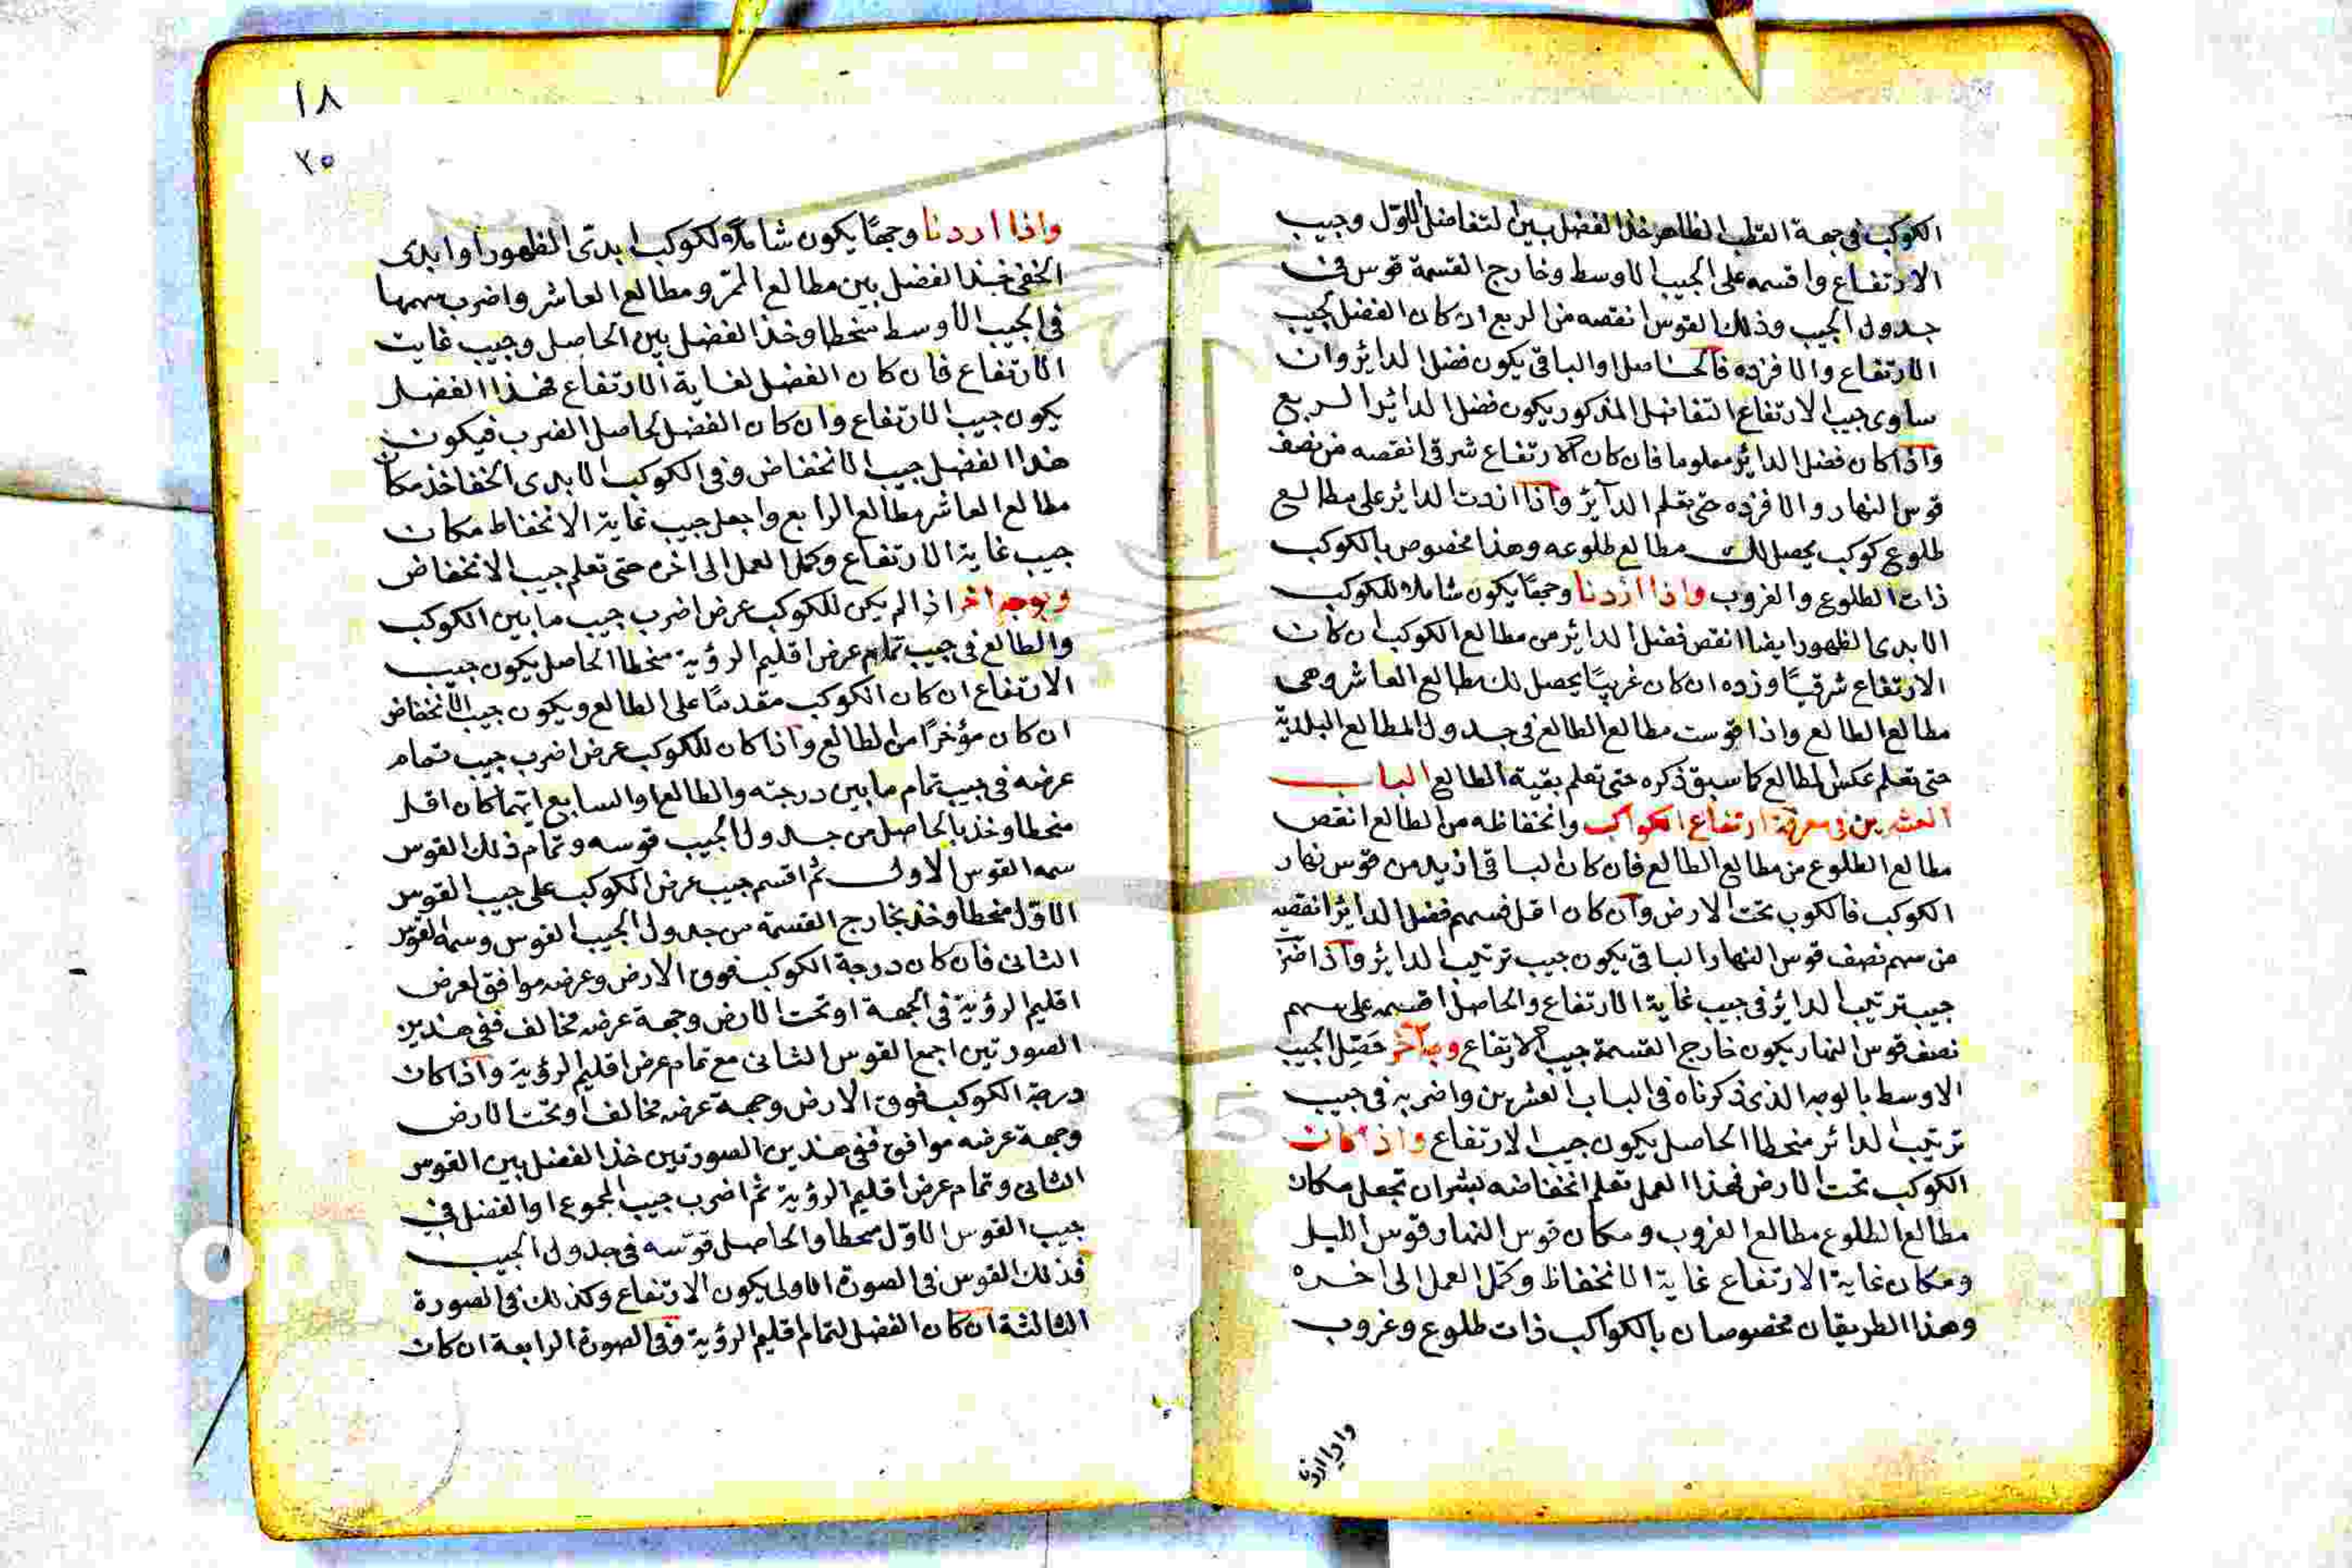 الكوكب في جهة القطب الظاهر خذ الفضل بين التفاضل الاول وجيب
الارتفاع واقسمه على الجيب الاوسط وخارج القسمة قوس في
جدول الجيب وذلك القوس انقصه من الربع ان كان الفضل لجيب
الارتفاع والا فزده فالحاصل او الباقي يكون فضل الدائر وان
ساوى جيب الارتفاع التفاضل المذكور يكون فضل الدائر الربع
واذا كان فضل الدائر معلوما فان كان الارتفاع شرقي انقصه من نصف
قوس النهار والا فزده حتى تعلم الدآئر واذا ازدت الدائر على مطالع
طلوع كوكب يحصل لك مطالع طلوعه وهذا مخصوص بالكوكب
ذات الطلوع والغروب واذا اردنا وجهًا يكون شاملا للكوكب
الابدى الظهور ايضا انقص فضل الدائر من مطالع الكوكب ان كان
الارتفاع شرقيًا وزده ان كان غربيًا يحصل لك مطالع العاشر وهى
مطالع الطالع واذا قوست مطالع الطالع في جدول المطالع البلدية
حتى تعلم عكس المطالع كما سبق ذكره حتى تعلم بقية الطالع الباب
العشرين في معرفة ارتفاع الكواكب وانخفاظه من الطالع انقص
مطالع الطلوع من مطالع الطالع فان كان الباقي ازيد من قوس نهار
الكوكب فالكوب تحت الارض وان كان اقل فسهم فضل الدائر انقصه
من سهم نصف قوس النهار الباقي يكون جيب ترتيب الدائر واذا ضرب
جيب ترتيب الدائر في جيب غاية الارتفاع والحاصل اقسمه على سهم
نصف قوس النهار يكون خارج القسمة جيب الارتفاع وبآخر حَصّل الجيب
الاوسط بالوجه الذى ذكرناه في الباب العشرين واضربه في جيب
ترتيب الدائر منحطا الحاصل يكون جيب الارتفاع واذا كان
الكوكب تحت الارض فهذا العمل تعلم انخفاضه بشران تجعل مكان
مطالع الطلوع مطالع الغروب ومكان قوس النهار قوس الليل
ومكان غاية الارتفاع غاية الانخفاظ وكمّل العمل الى اخره
وهذا الطريقان مخصوصان بالكواكب ذات طلوع وغروب
واذا اردنا
١٨
٢٥
واذا اردنا وجهًا يكون شاملًا لكوكب ابدىّ الظهور او ابدى
الخفي فخذ الفضل بين مطالع الممرّ ومطالع العاشر واضرب سهمها
في الجيب الاوسط منحطا وخذ الفضل بين الحاصل وجيب غايت
الارتفاع فان كان الفضل لغاية الارتفاع فهذا الفضل
يكون جيب الارتفاع وان كان الفضل لحاصل الضرب فيكون
هذا الفضل جيب الانخفاض وفي الكوكب الابدى الخفا خذ مكان
مطالع العاشر مطالع الرابع واجعل جيب غاية الانخفاظ مكان
جيب غاية الارتفاع وكمل العمل الى اخره حتى تعلم جيب الانخفاض
وبوجه اخر اذا لم يكن للكوكب عرض اضرب جيب ما بين الكوكب
والطالع في جيب تمام عرض اقليم الرؤية منحطا الحاصل يكون جيب
الارتفاع ان كان الكوكب مقدمًا على الطالع ويكون جيب الانخفاض
ان كان مؤخرًا من الطالع واذا كان للكوكب عرض اضرب جيب تمام
عرضه في جيب تمام ما بين درجته والطالع او السابع ايّهما كان اقل
منحطا وخذ بالحاصل من جدول الجيب قوسه وتمام ذلك القوس
سمه القوس الاول ثم اقسم جيب عرض الكوكب على جيب القوس
الاوّل منحطا وخذ بخارج القسمة من جدول الجيب القوس وسمه القوس
الثاني فان كان درجة الكوكب فوق الارض وعرضه موافق لعرض
اقليم الرؤية في الجهة او تحت الارض وجهة عرضه مخالف ففي هذين
الصورتين اجمع القوس الثاني مع تمام عرض اقليم الرؤية واذا كان
درجة الكوكب فوق الارض وجهة عرضه مخالف او تحت الارض
وجهة عرضه موافق ففي هذين الصورتين خذ الفضل بين القوس
الثاني وتمام عرض اقليم الرؤية ثم اضرب جيب المجموع او الفضل في
جيب القوس الاوّل منحطا والحاصل قوّسه في جدول الجيب
فذلك القوس في الصورة الاولى يكون الارتفاع وكذلك في الصورة
الثالثة ان كان الفضل لتمام اقليم الرؤية وفي الصورة الرابعة ان كان